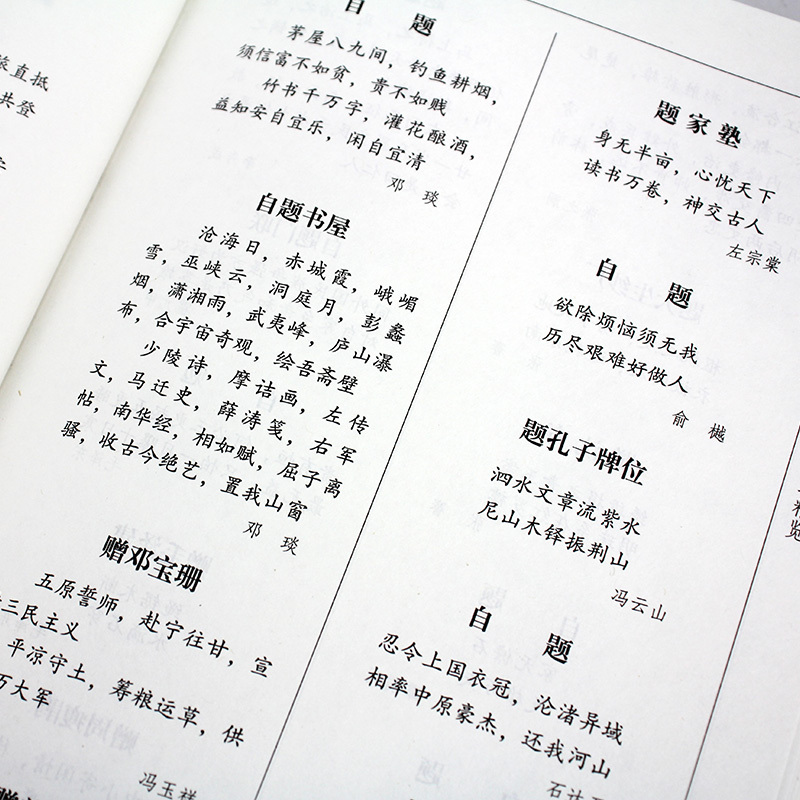 直抵
共登
自 题
茅屋八九间，钓鱼耕烟，
须信富不如贫，贵不如贱
竹书千万字，灌花酿酒，
益知安自宜乐，闲自宜清
邓 琰
自题书屋
沧海日，赤城霞，峨嵋
雪，巫峡云，洞庭月，彭蠡
烟，潇湘雨，武夷峰，庐山瀑
布，合宇宙奇观，绘吾斋壁
少陵诗，摩诘画，左传
文，马迁史，薛涛笺，右军
帖，南华经，相如赋，屈子离
骚，收古今绝艺，置我山窗
邓 琰
赠邓宝珊
五原誓师，赴宁往甘，宣
三民主义
平凉守土，筹粮运草，供
万大军
冯玉祥
题家塾
身无半亩，心忧天下
读书万卷，神交古人
左宗棠
自 题
欲除烦恼须无我
历尽艰难好做人
俞 樾
题孔子牌位
泗水文章流紫水
尼山木铎振荆山
冯云山
自 题
忍令上国衣冠，沦渚异域
相率中原豪杰，还我河山
石达
精
览